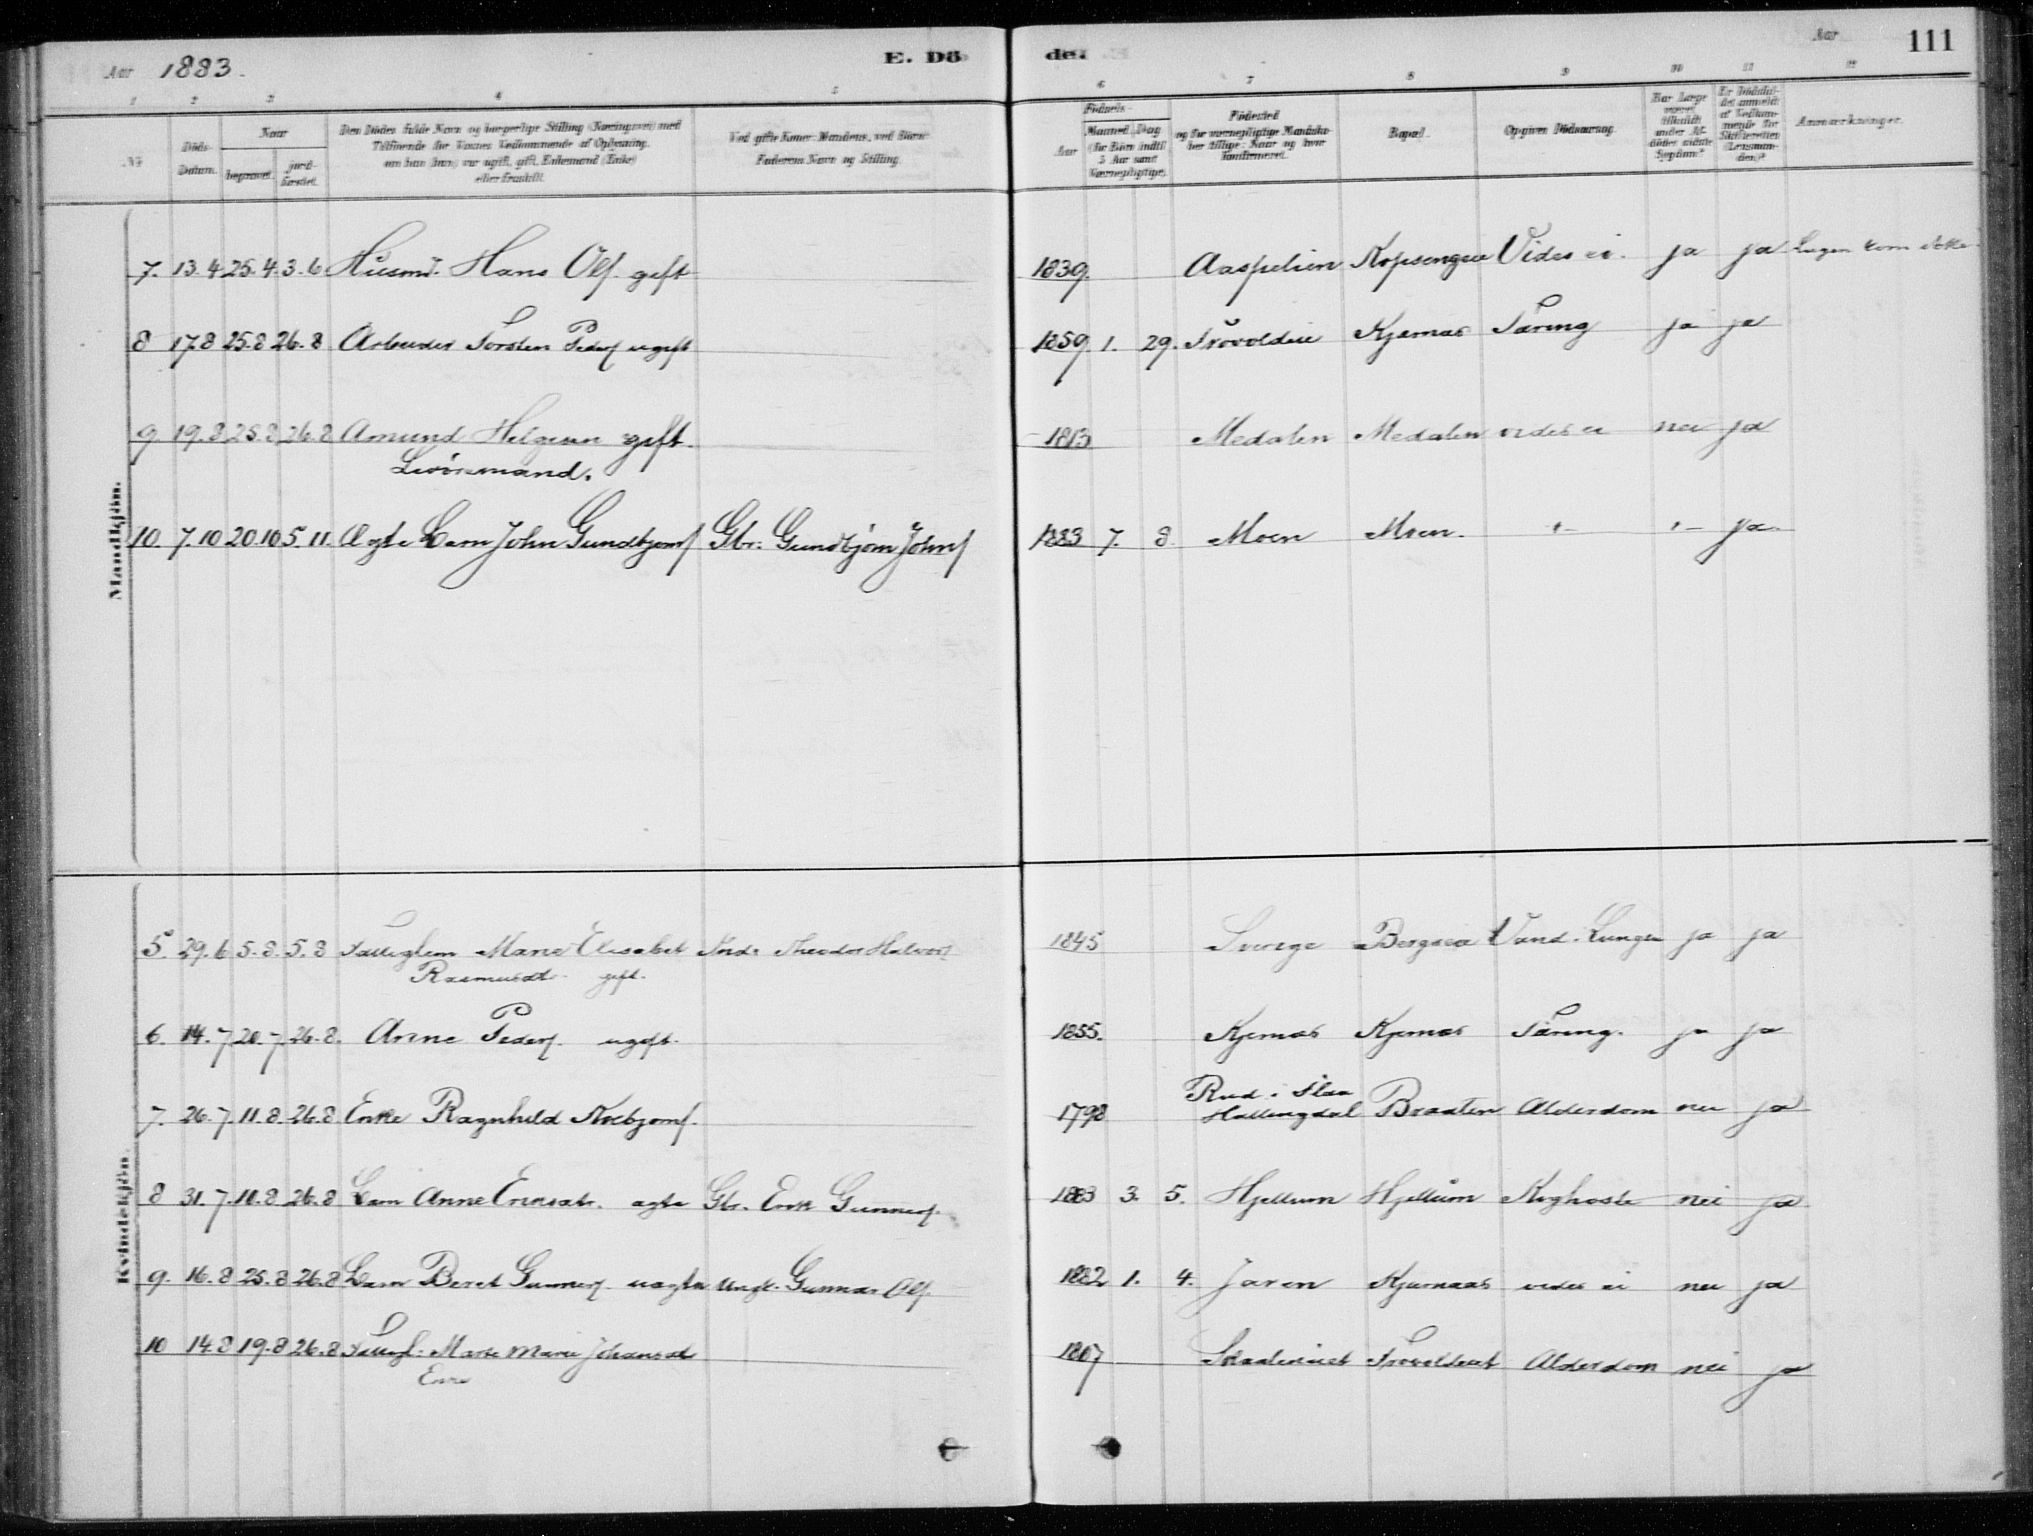 Aar 1883.
E. Dö
de.
Aar
111
1 2 3 4 5
6 7 8 9 10 11 12
No
Döds-Datum.
Naar
begravet.
jord-fæstet.
Den Dödes fulde Navn og borgerlige Stilling (Næringsvei) med
Tilføiende for Voxnes Vedkommende af Oplysning,
om han (hun) var ugift, gift, Enkemand (Enke)
eller fraskilt.
Ved gifte Koner: Mandens, ved Börn:
Faderens Navn og Stilling.
Födsels-
Aar
Maaned Dag
(for Börn indtil
5 Aar samt
Værnepligtige).
Födested
og for værnepligtige Mandska-
ber tillige: Naar og hvor
konfirmeret.
Bopæl.
Opgiven Dödsaarsag.
Har Læge
været
tilkaldt
under Af-
dödes sidste
Sygdom?
Er Dödsfal-
det anmeldt
af Vedkom-
mende for
Skifteretten
(Lensman-
den)?
Anmærkninger.
Mandkjön.
7. 13.4 25.4 3.6 Husmd. Hans Olf. gift 1839. Aaspelien Kopsengeie Vides ei. ja ja Lægen kom ikke
8 17.8 25.8 26.8 Arbeider Torsten Pedersf ugift 1859. 1. 29. Trovoldeie Kjernas Tæring ja ja
9. 19.8 25.8 26.8 Amund Helgesen gift. 1813 Medalen Medalen vides ei nei ja
Livöresmand.
10. 7.10 20.10 5.11. Ægte Barn John Gundbjørnsf Gbr: Gundbjørn Johnsf 1883 7. 8. Moen Moen. "– "– ja.
Kvindekjön.
5. 29.6 5.8. 5.8 Fattiglem Marie Elisabet Inds Theodor Halvorsf 1845 Sverige Bergseie Vand. Lungen ja ja
Rasmusdt. gift.
6. 14.7 20.7 26.8. Anne Pedersf. ugift. 1855. Kjernas Kjernas Tæring. ja ja
7. 26.7. 11.8. 26.8 Enke Ragnhild Asbjørnsf. 1798 Rud i Flaa
Hallingdal Braaten Alderdom nei ja
8 31.7. 10.8. 26.8 Barn Anne Eriksdtr. ægte Gbr. Erik Gunnersf. 1883 3. 5. Hjellum Hjellum Kighoste nei ja.
9. 16.8 25.8 26.8 Barn Beret Gunnersf. uægte Ungk. Gunnar Olf. 1882 1. 4. Jaren Kjernaas vides ei nei ja
10 14.8 19.8 26.8 Fattigl: Marte Marie Johansdt 1807 Trovoldeiet Alderdom nei ja
Enke